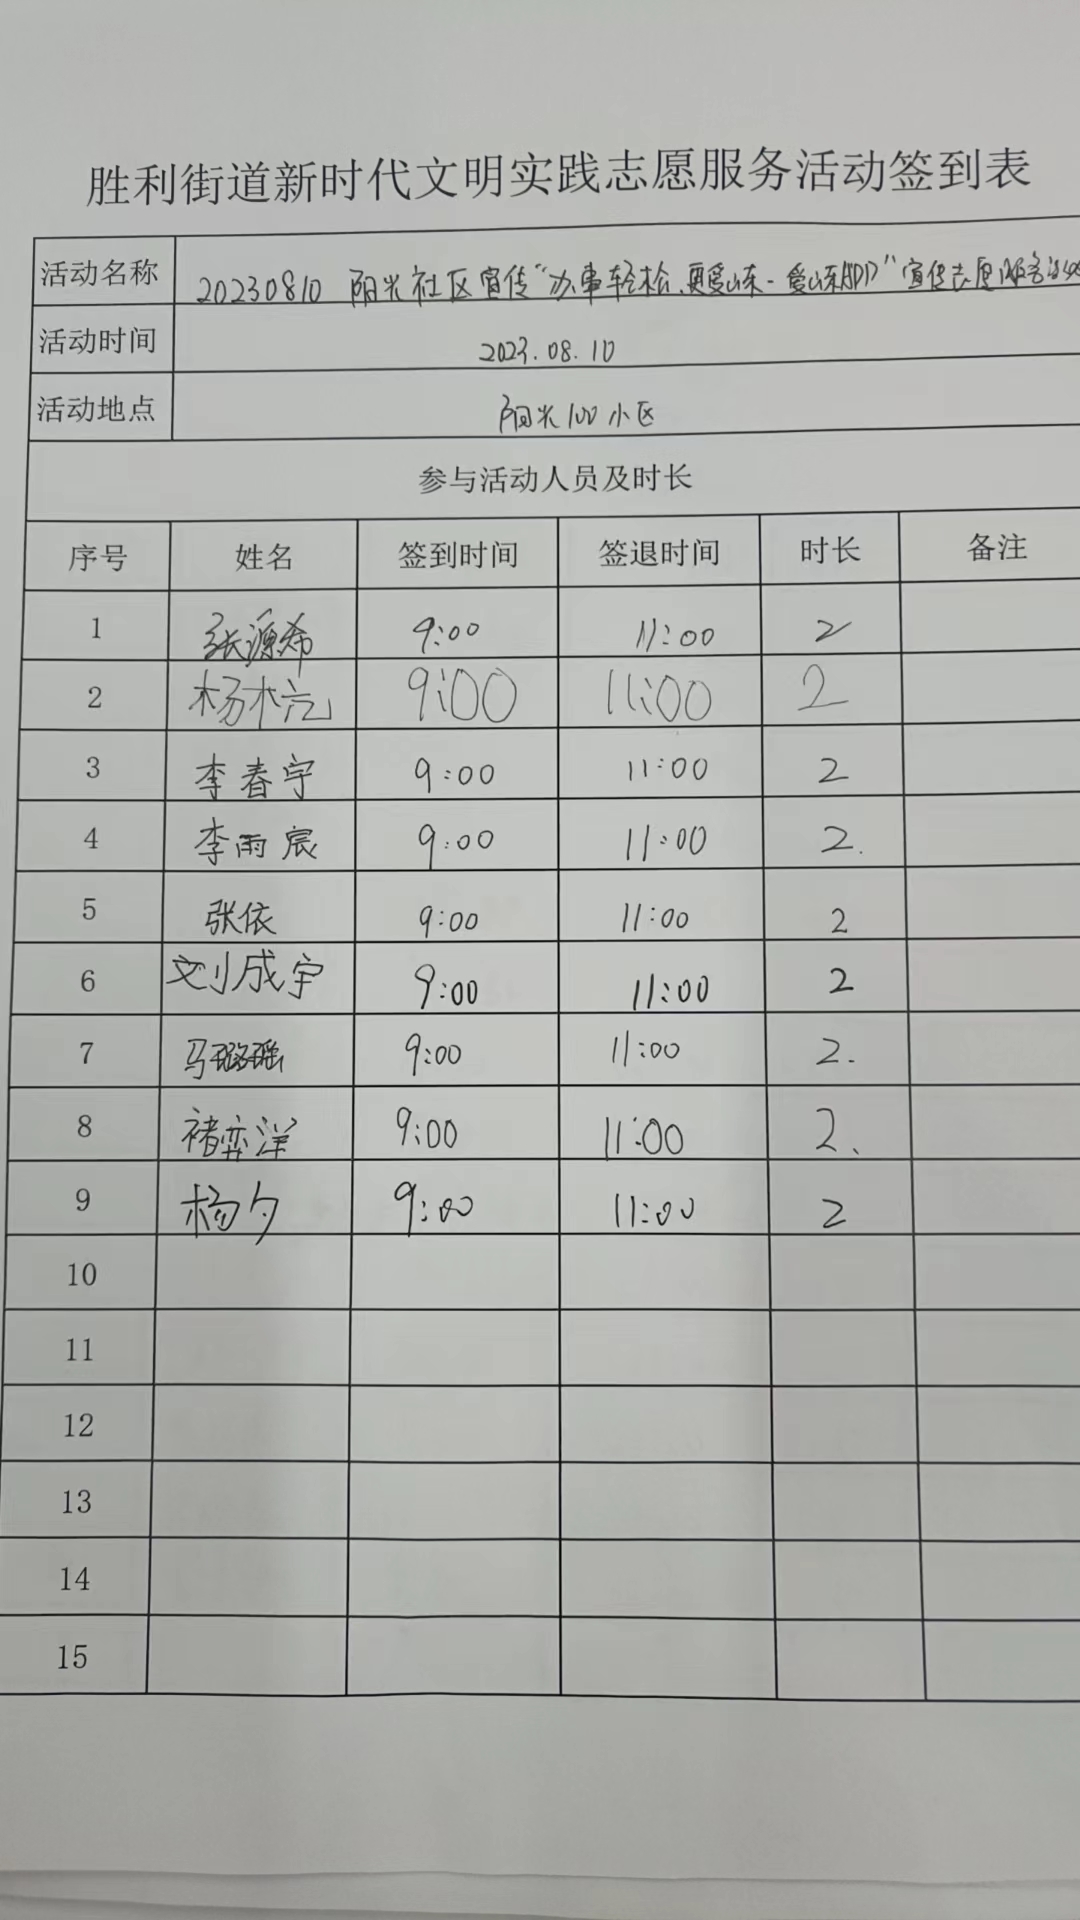 胜利街道新时代文明实践志愿服务活动签到表
活动名称 20230810 阳光社区宣传“办事轻松、更爱山东-爱山东APP”宣传志愿服务活动
活动时间 2023.08.10
活动地点 阳光100小区
参与活动人员及时长
序号 姓名 签到时间 签退时间 时长 备注
1 张源希 9:00 11:00 2
2 杨木 9:00 11:00 2
3 李春宇 9:00 11:00 2
4 李雨宸 9:00 11:00 2.
5 张依 9:00 11:00 2
6 刘成宇 9:00 11:00 2
7 马璐瑶 9:00 11:00 2.
8 褚弈洋 9:00 11:00 2.
9 杨夕 9:00 11:00 2
10
11
12
13
14
15